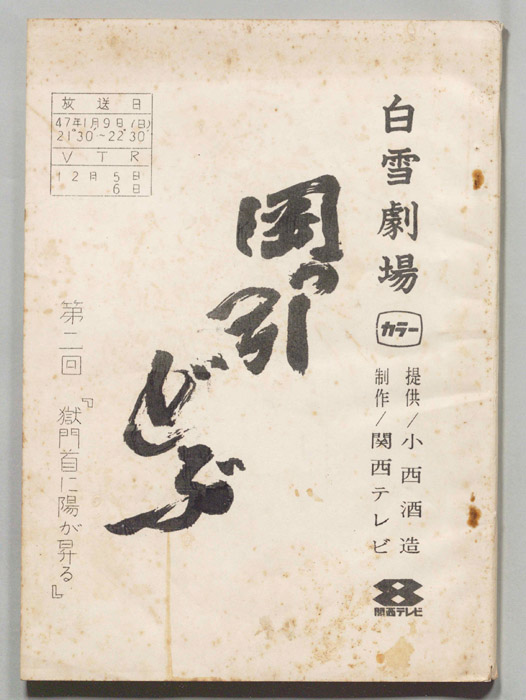 白雪劇場
カラー
提供/小西酒造
制作/関西テレビ
関西テレビ
岡っ引
どぶ
放送日
47年1月9日(日)
21°30′~22°30′
VTR
12月5日
6日
第二回
『獄門首に陽が昇る』